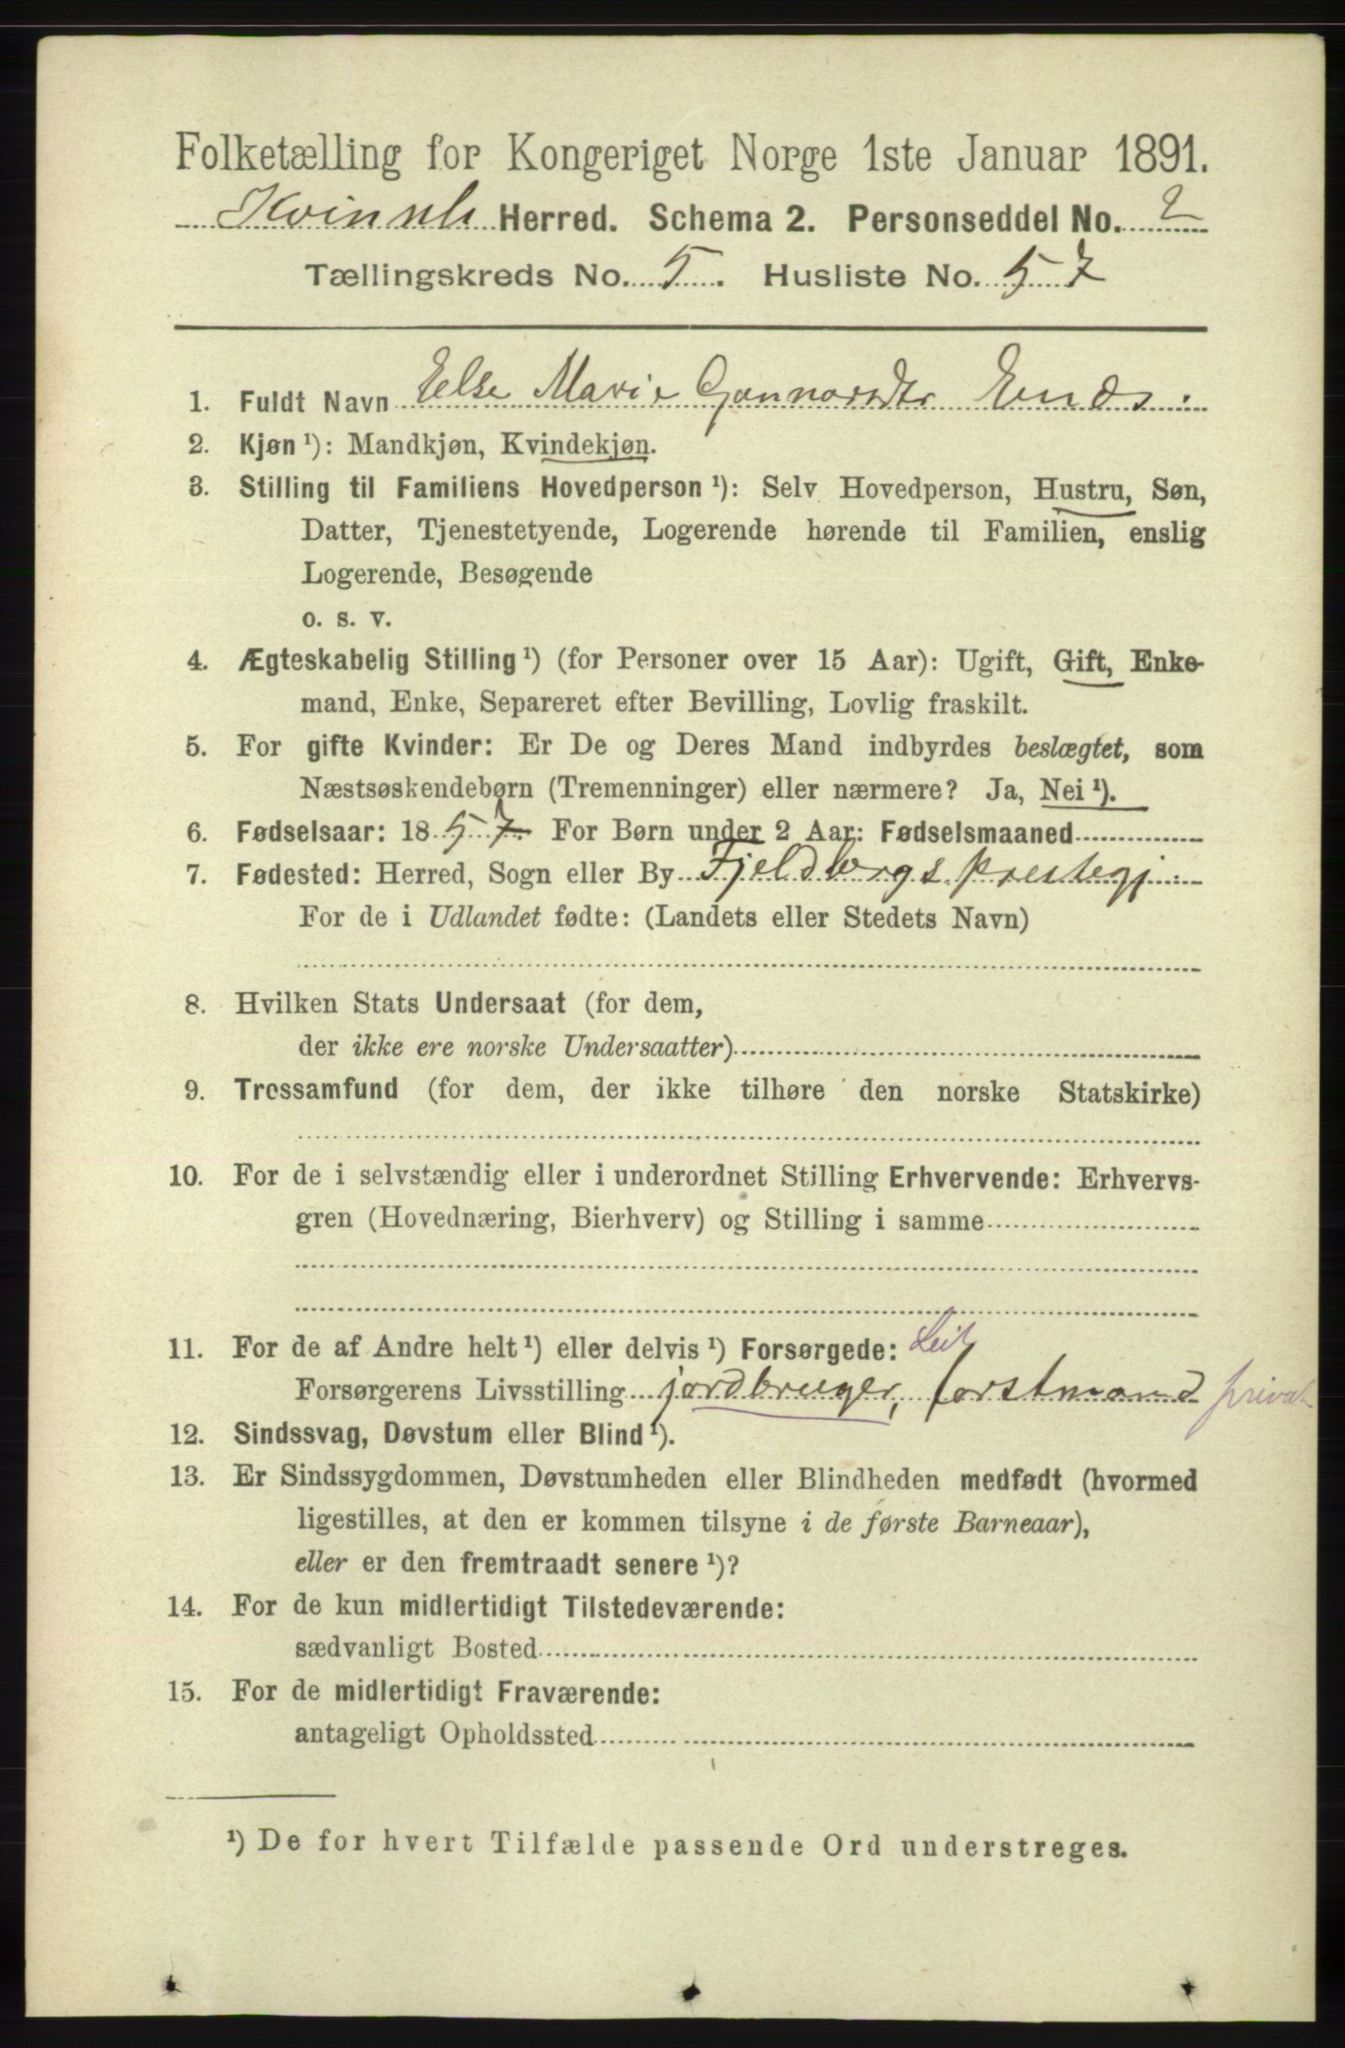 Folketælling for Kongeriget Norge 1ste Januar 1891.
Kvinnh Herred. Schema 2. Personseddel No. 2
Tællingskreds No. 5. Husliste No. 57
1. Fuldt Navn Else Marie Gunnarsdtr Enæs.
2. Kjøn ¹): Mandkjøn, Kvindekjøn.
3. Stilling til Familiens Hovedperson ¹): Selv Hovedperson, Hustru, Søn,
Datter, Tjenestetyende, Logerende hørende til Familien, enslig
Logerende, Besøgende
o. s. v.
4. Ægteskabelig Stilling ¹) (for Personer over 15 Aar): Ugift, Gift, Enke-
mand, Enke, Separeret efter Bevilling, Lovlig fraskilt.
5. For gifte Kvinder: Er De og Deres Mand indbyrdes beslægtet, som
Næstsøskendebørn (Tremenninger) eller nærmere? Ja, Nei ¹).
6. Fødselsaar: 1857 For Børn under 2 Aar: Fødselsmaaned
7. Fødested: Herred, Sogn eller By Fjeldbergs prestegj.
For de i Udlandet fødte: (Landets eller Stedets Navn)
8. Hvilken Stats Undersaat (for dem,
der ikke ere norske Undersaatter)
9. Trossamfund (for dem, der ikke tilhøre den norske Statskirke)
10. For de i selvstændig eller i underordnet Stilling Erhvervende: Erhvervs-
gren (Hovednæring, Bierhverv) og Stilling i samme
11. For de af Andre helt ¹) eller delvis ¹) Forsørgede: Leil
Forsørgerens Livsstilling jordbruger, forstmand privat
12. Sindssvag, Døvstum eller Blind ¹).
13. Er Sindssygdommen, Døvstumheden eller Blindheden medfødt (hvormed
ligestilles, at den er kommen tilsyne i de første Barneaar),
eller er den fremtraadt senere ¹)?
14. For de kun midlertidigt Tilstedeværende:
sædvanligt Bosted
15. For de midlertidigt Fraværende:
antageligt Opholdssted
¹) De for hvert Tilfælde passende Ord understreges.